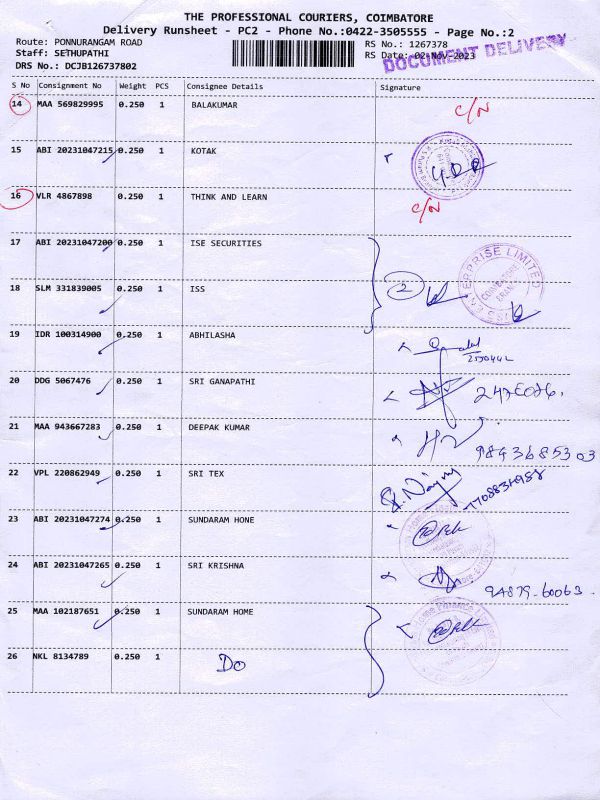 THE PROFESSIONAL COURIERS, COIMBATORE
Delivery Runsheet - PC2 - Phone No.:0422-3505555 - Page No.:2
Route: PONNURANGAM ROAD
RS No.: 1267378
Staff: SETHUPATHI
RS Date: 02-Nov-2023
DRS No.: DCJB126737802
DOCUMENT DELIVERY
S No Consignment No Weight PCS Consignee Details Signature
14 MAA 569829995 0.250 1 BALAKUMAR C/N
15 ABI 20231047215 0.250 1 KOTAK
16 VLR 4867898 0.250 1 THINK AND LEARN C/N
17 ABI 20231047200 0.250 1 ISE SECURITIES
ERPRISE LIMITED
18 SLM 331839005 0.250 1 ISS 2
19 IDR 100314900 0.250 1 ABHILASHA
20 DDG 5067476 0.250 1 SRI GANAPATHI
21 MAA 943667283 0.250 1 DEEPAK KUMAR 9843685303
22 VPL 220862949 0.250 1 SRI TEX
23 ABI 20231047274 0.250 1 SUNDARAM HONE
24 ABI 20231047265 0.250 1 SRI KRISHNA 94879-60063
25 MAA 102187651 0.250 1 SUNDARAM HOME
26 NKL 8134789 0.250 1 DO